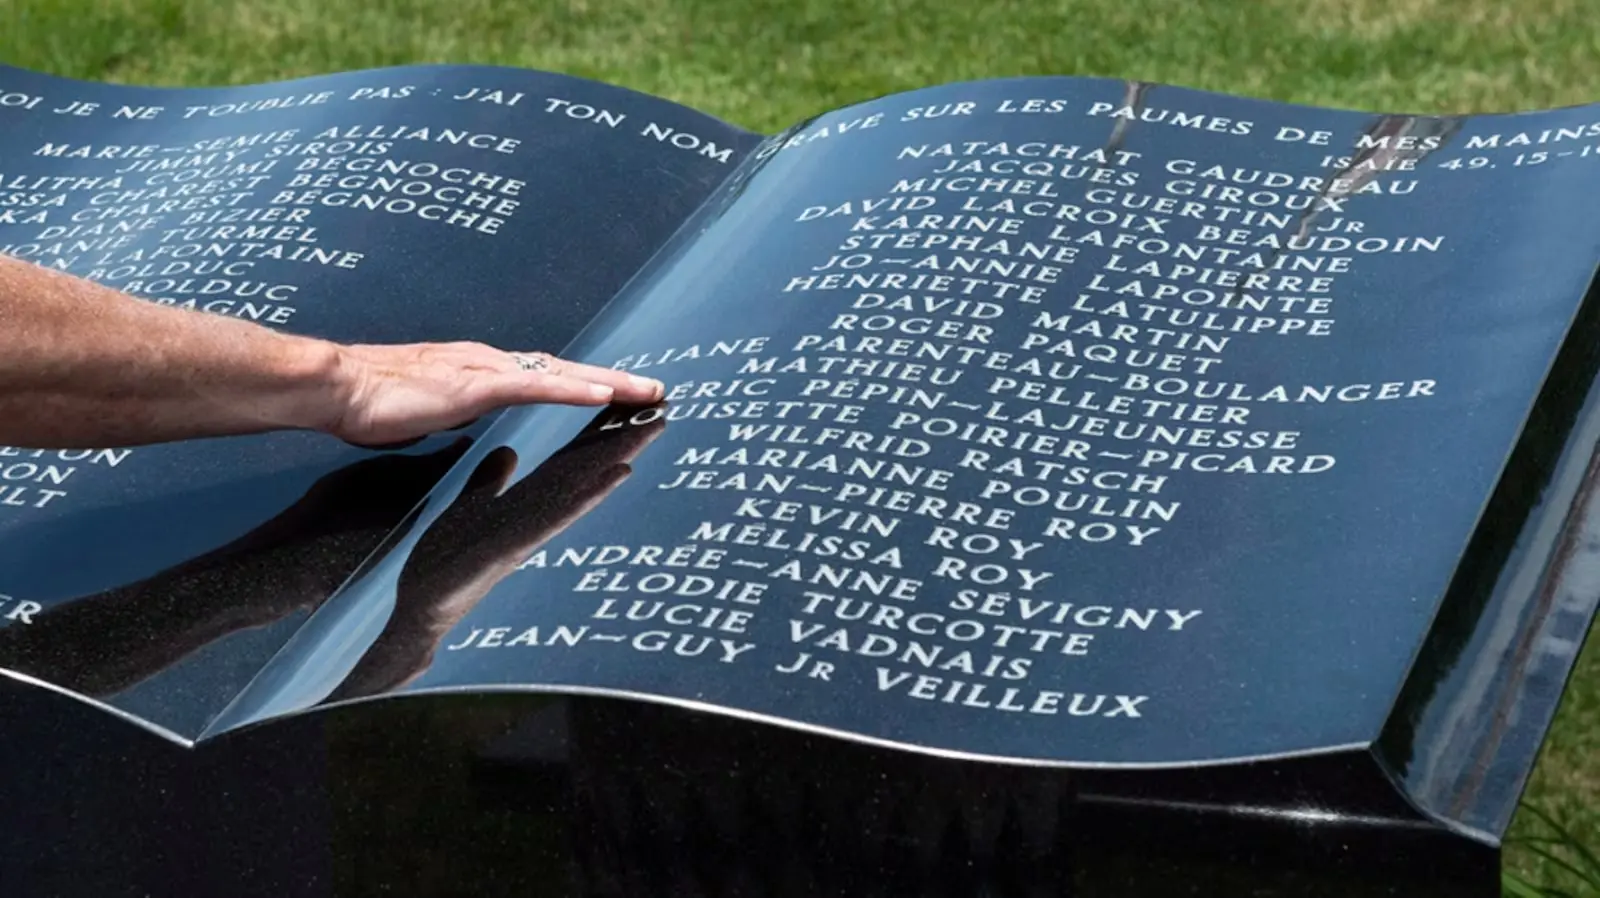 JE NE T'OUBLIE PAS : J'AI TON NOM
MARIE~SEMIE ALLIANCE
JIMMY SIROIS
COUMI BÉGNOCHE
CHAREST BÉGNOCHE
CHAREST BÉGNOCHE
DIANE BIZIER
TURMEL
LAFONTAINE
BOLDUC
BOLDUC
GRAVÉ SUR LES PAUMES DE MES MAINS
ISAÏE 49, 15~
NATACHAT GAUDREAU
JACQUES GIROUX
MICHEL GUERTIN JR
DAVID LACROIX BEAUDOIN
KARINE LAFONTAINE
STÉPHANE LAPIERRE
JO~ANNIE LAPOINTE
HENRIETTE LATULIPPE
DAVID MARTIN
ROGER PAQUET
ÉLIANE PARENTEAU~BOULANGER
MATHIEU PELLETIER
ÉRIC PÉPIN~LAJEUNESSE
LOUISETTE POIRIER~PICARD
WILFRID RATSCH
MARIANNE POULIN
JEAN~PIERRE ROY
KEVIN ROY
MÉLISSA ROY
ANDRÉE~ANNE SÉVIGNY
ÉLODIE TURCOTTE
LUCIE VADNAIS
JEAN~GUY JR VEILLEUX